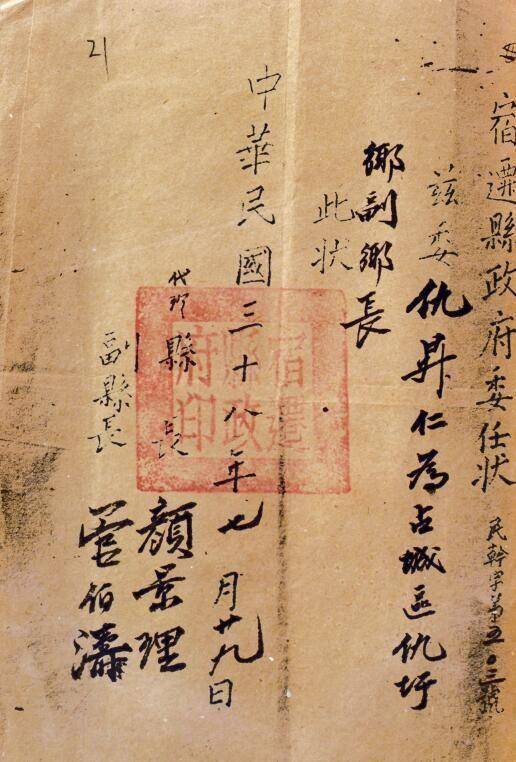 宿遷縣政府委任状
民幹字第五〇三號
茲委仇昇仁為占城區仇圩
鄉副鄉長
此状
代理縣長 顏景理
副縣長 管伯濤
中華民國三十八年七月廿九日
宿遷縣政府印
21